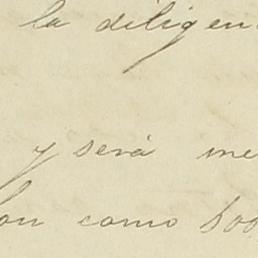 la diligen
y será me
on como boo